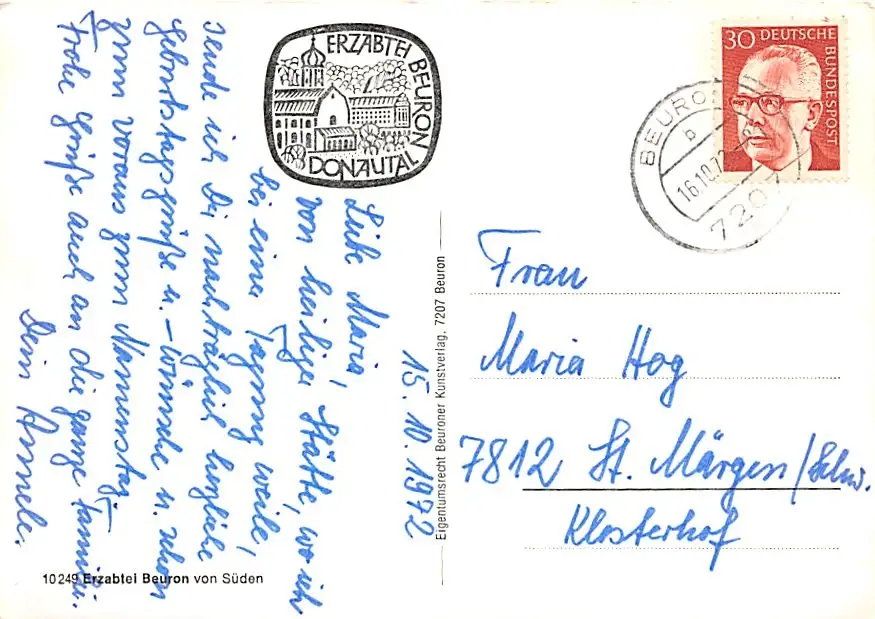 15. 10. 1972
Liebe Maria,
von heilige Stätte, wo ich
bei einer Tagung weile,
sende ich Dir nachträglich herzliche
Geburtstagsgrüße u. -wünsche u. schon
zum voraus zum Namenstag.
Frohe Grüße auch an die ganze Familie.
Dein Annele.
ERZABTEI BEURON
DONAUTAL
10249 Erzabtei Beuron von Süden
Eigentumsrecht Beuroner Kunstverlag, 7207 Beuron
30 DEUTSCHE
BUNDESPOST
BEURON
b
16.10.72
7207
Frau
Maria Hog
7812 St. Märgen/Schw.
Klosterhof